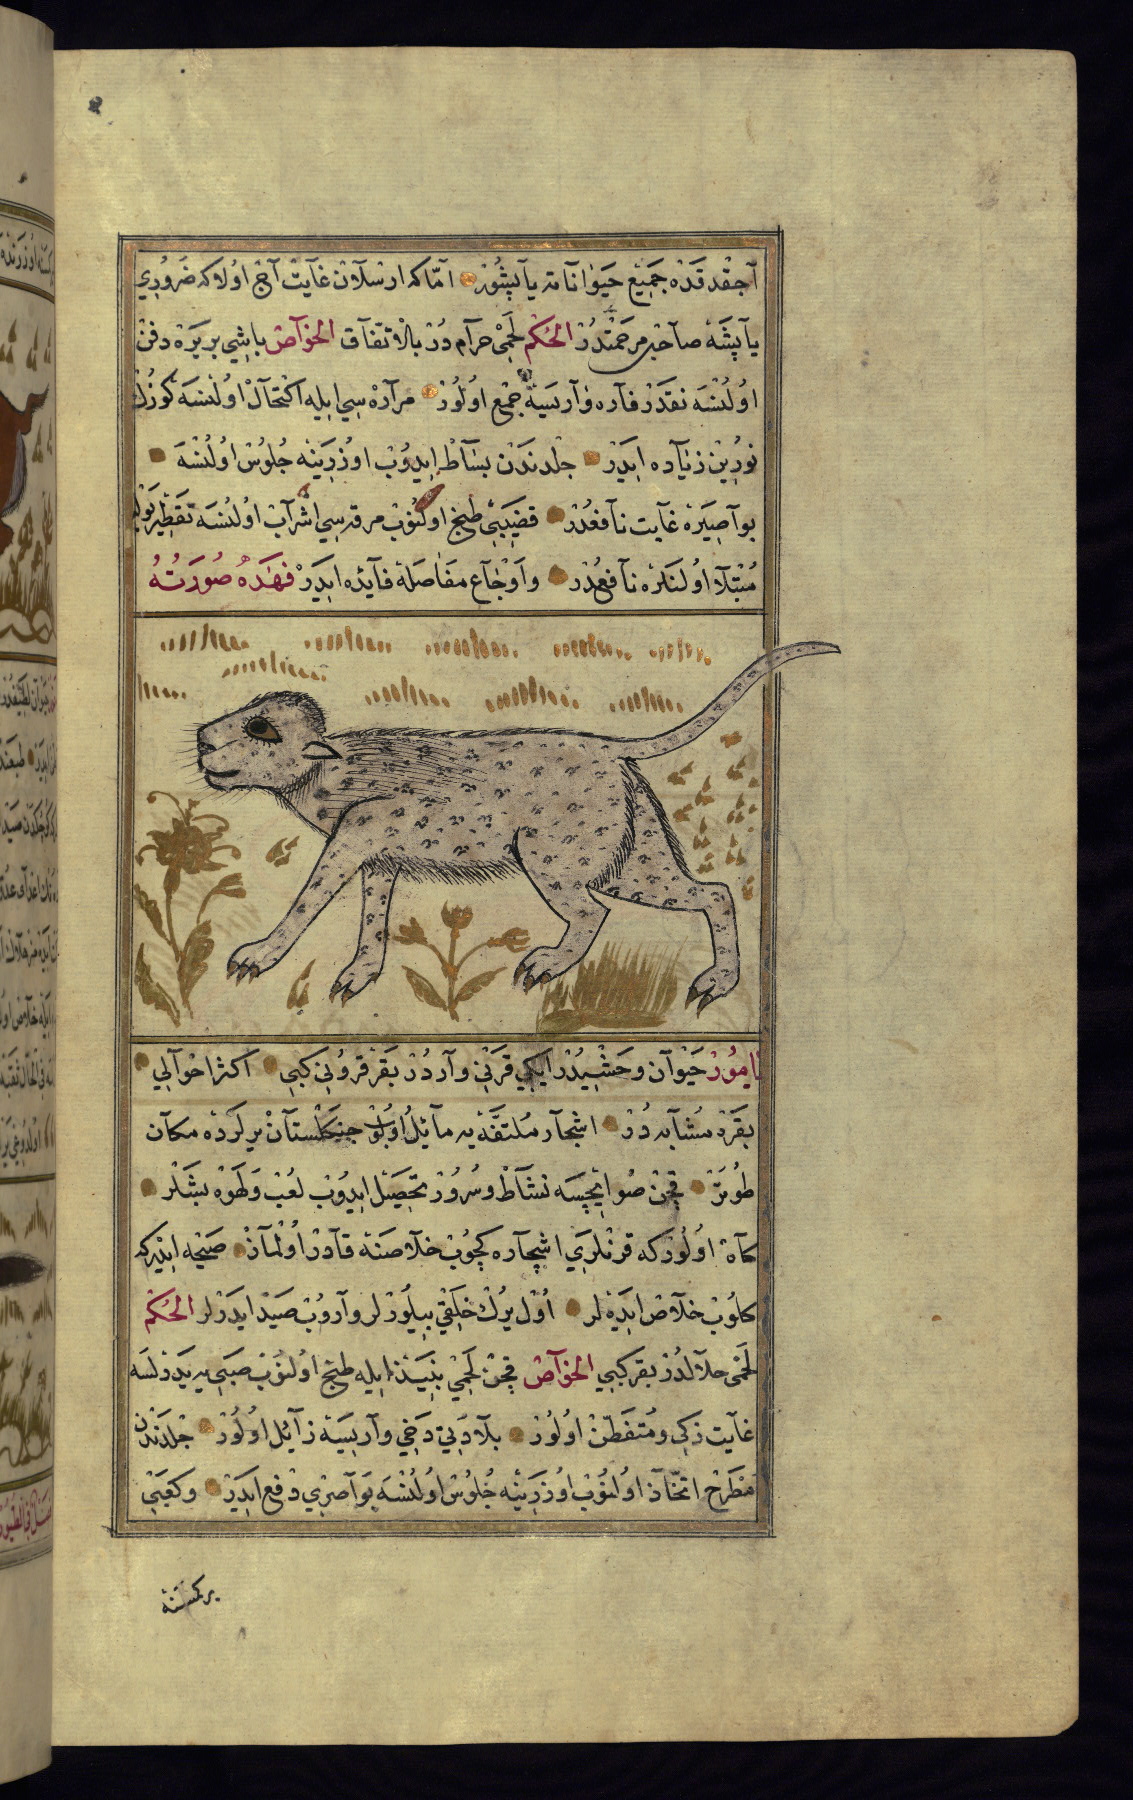 آجقدقده جميع حيوانآته يآپشور امّا كه ارسلآن غآيت آج اولا كه ضروري
يآپشه صآحب مرحمتدر الحكم لحمى حرآم در بالاتّفآق الخوآص باشي بر يرده دفن
اولنسه نقدر فآره وآرسه جمع اولور مرآره سي ايله اكتحآل اولنسه كوزك
نورين زيآده ايدر جلدندن بسآط ايدوب اوزرينه جلوس اولنسه
بوآصيره غآيت نآفعدر قضيبي طبخ اولنوب مرقه سي اشرآب اولنسه تقطير بوله
مبتلآ اولنلره نآفعدر واوجآع مفاصله فآيده ايدر فهذه صورته
يامور حيوآن وحشيدر ايكي قرني وآردر بقر قروني كبي اكثر احوآلي
بقره مشآبه در اشجآر ملتفّه يه مآئل اولوب جنكلستآن يرلرده مكآن
طوتر قچن صو ايچسه نشآط وسرور تحصيل ايدوب لعب ولهوه بشلر
كآه اولور كه قرنلري اشجآره كچوب خلآصنه قآدر اولمآز صيحه ايدر كه
كلوب خلآص ايده لر اول يرك خلقي بيلورلر وآروب صيد ايدرلر الحكم
لحمى حلآلدر بقر كبي الخوآص قچن لحمي نبيذ ايله طبخ اولنوب صبي يه يدرلسه
غآيت زكي ومتفطّن اولور بلآدتي دخي وآريسه زآئل اولور جلدندن
مطرح اتّخآذ اولنوب اوزرينه جلوس اولنسه بوآصيري دفع ايدر وكعبني
بر كمسنه